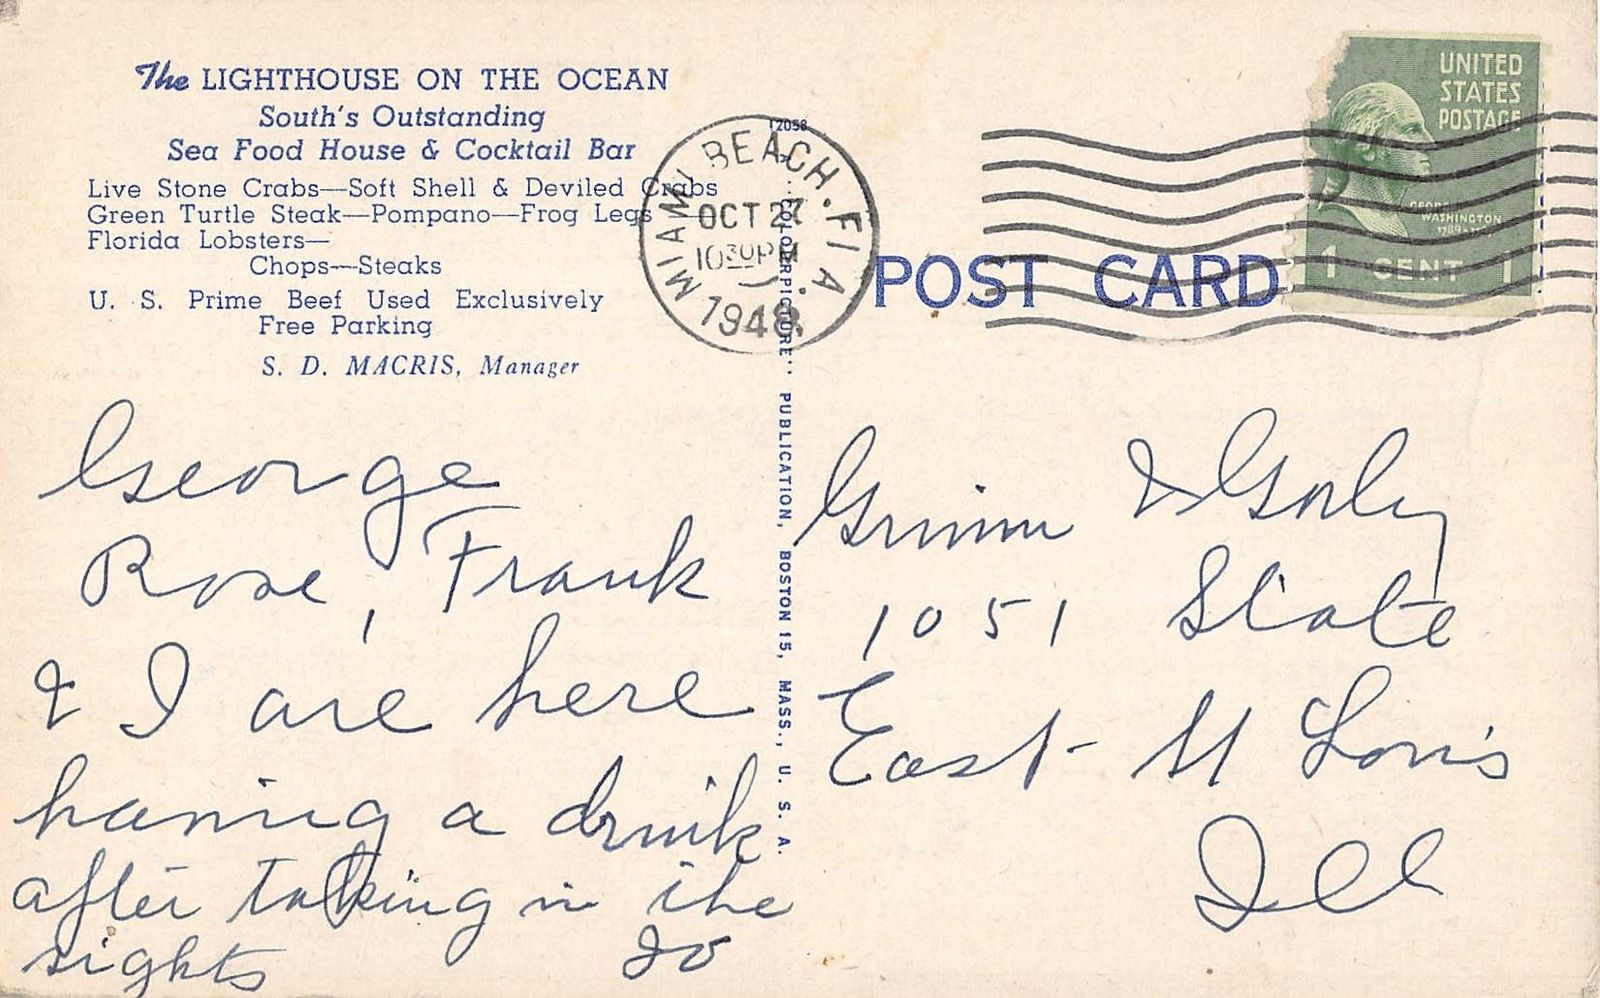 The LIGHTHOUSE ON THE OCEAN
South's Outstanding
Sea Food House & Cocktail Bar
Live Stone Crabs—Soft Shell & Deviled Crabs
Green Turtle Steak—Pompano—Frog Legs—
Florida Lobsters—
Chops—Steaks
U. S. Prime Beef Used Exclusively
Free Parking
S. D. MACRIS, Manager
George
Rose, Frank
& I are here
having a drink
after taking in the
sights
12058
COLORPICTURE" PUBLICATION, BOSTON 15, MASS., U. S. A.
MIAMI BEACH. FLA.
OCT 27
10 30 PM
1948
POST CARD
UNITED
STATES
POSTAGE
GEORGE
WASHINGTON
1 CENT 1
Grimm & Gorly
1051 State
East St Louis
Ill